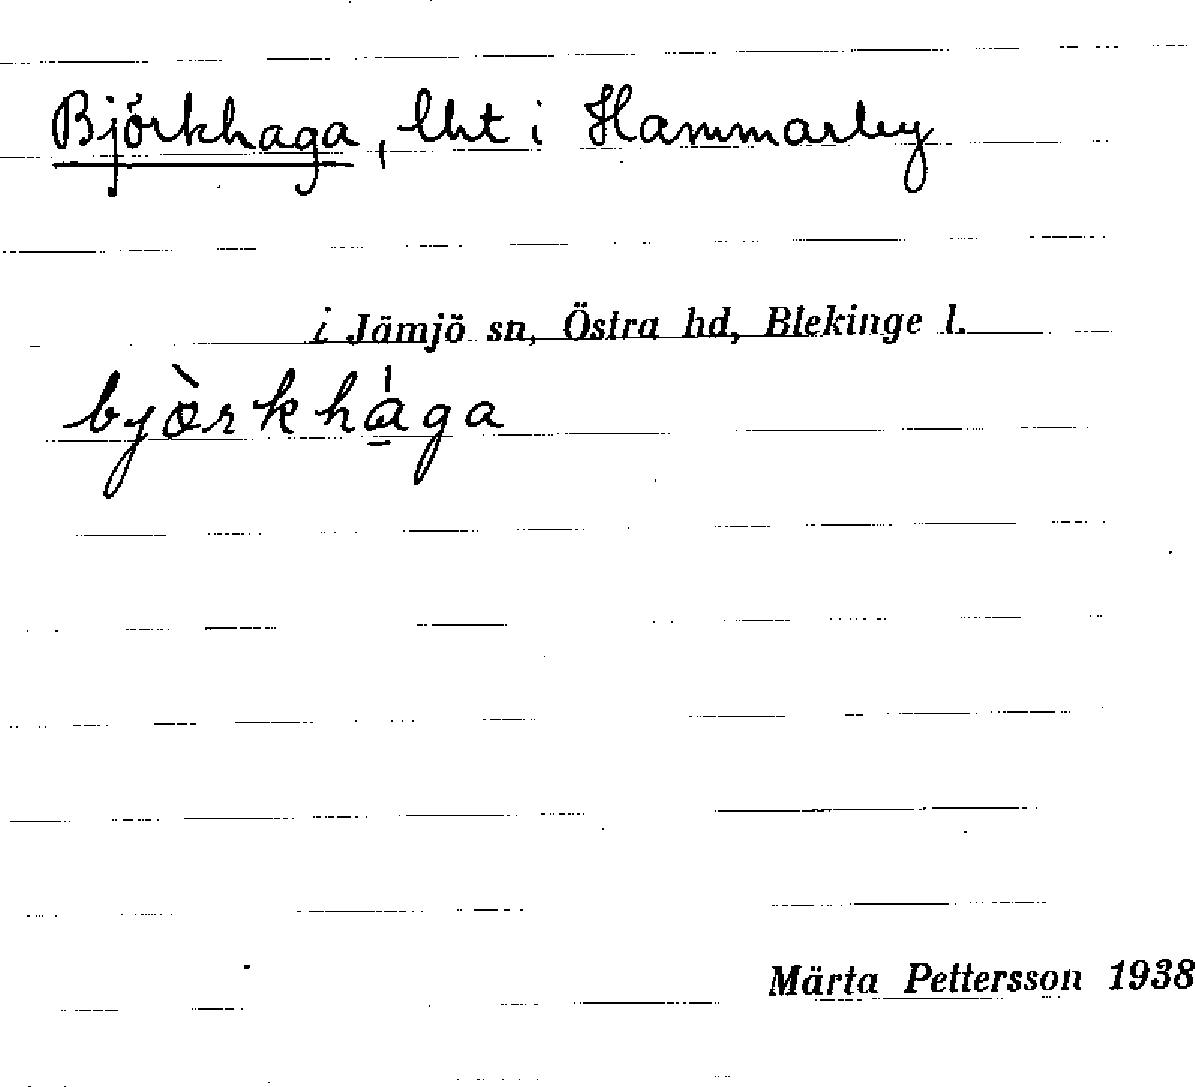 Björkhaga, lht i Hammarby
i Jämjö sn, Östra hd, Blekinge l.
bjòrkhága
Märta Pettersson 1938